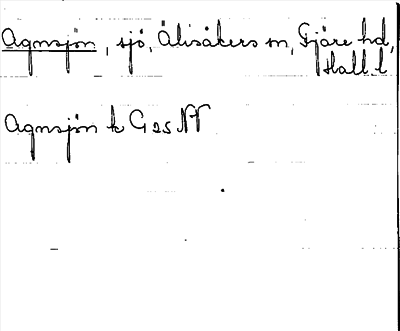 Agnsjön, sjö, Älvsåkers sn, Fjäre hd,
Hall. l
Agnsjön k G 25 NV